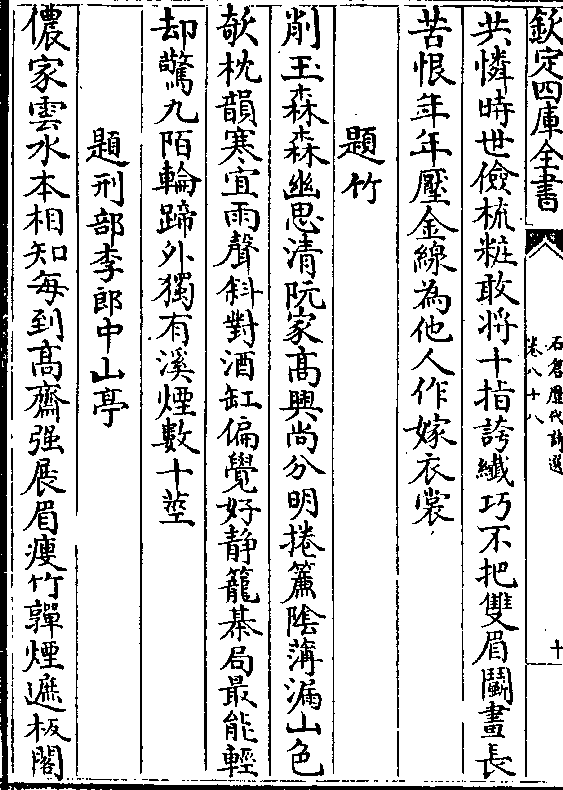 欽定四庫全書
石倉歷代詩選
卷八十八
十
共憐時世儉梳粧敢將十指誇纎巧不把雙眉鬭畫長
苦恨年年壓金線為他人作嫁衣裳
題竹
削玉森森幽思清阮家高興尚分明捲簾隂薄漏山色
欹枕韻寒宜雨聲斜對酒缸偏覺好静籠棊局最能輕
却驚九陌輪蹄外獨有溪煙數十莖
題刑部李郎中山亭
儂家雲水本相知每到高齋强展眉瘦竹嚲煙遮板閣